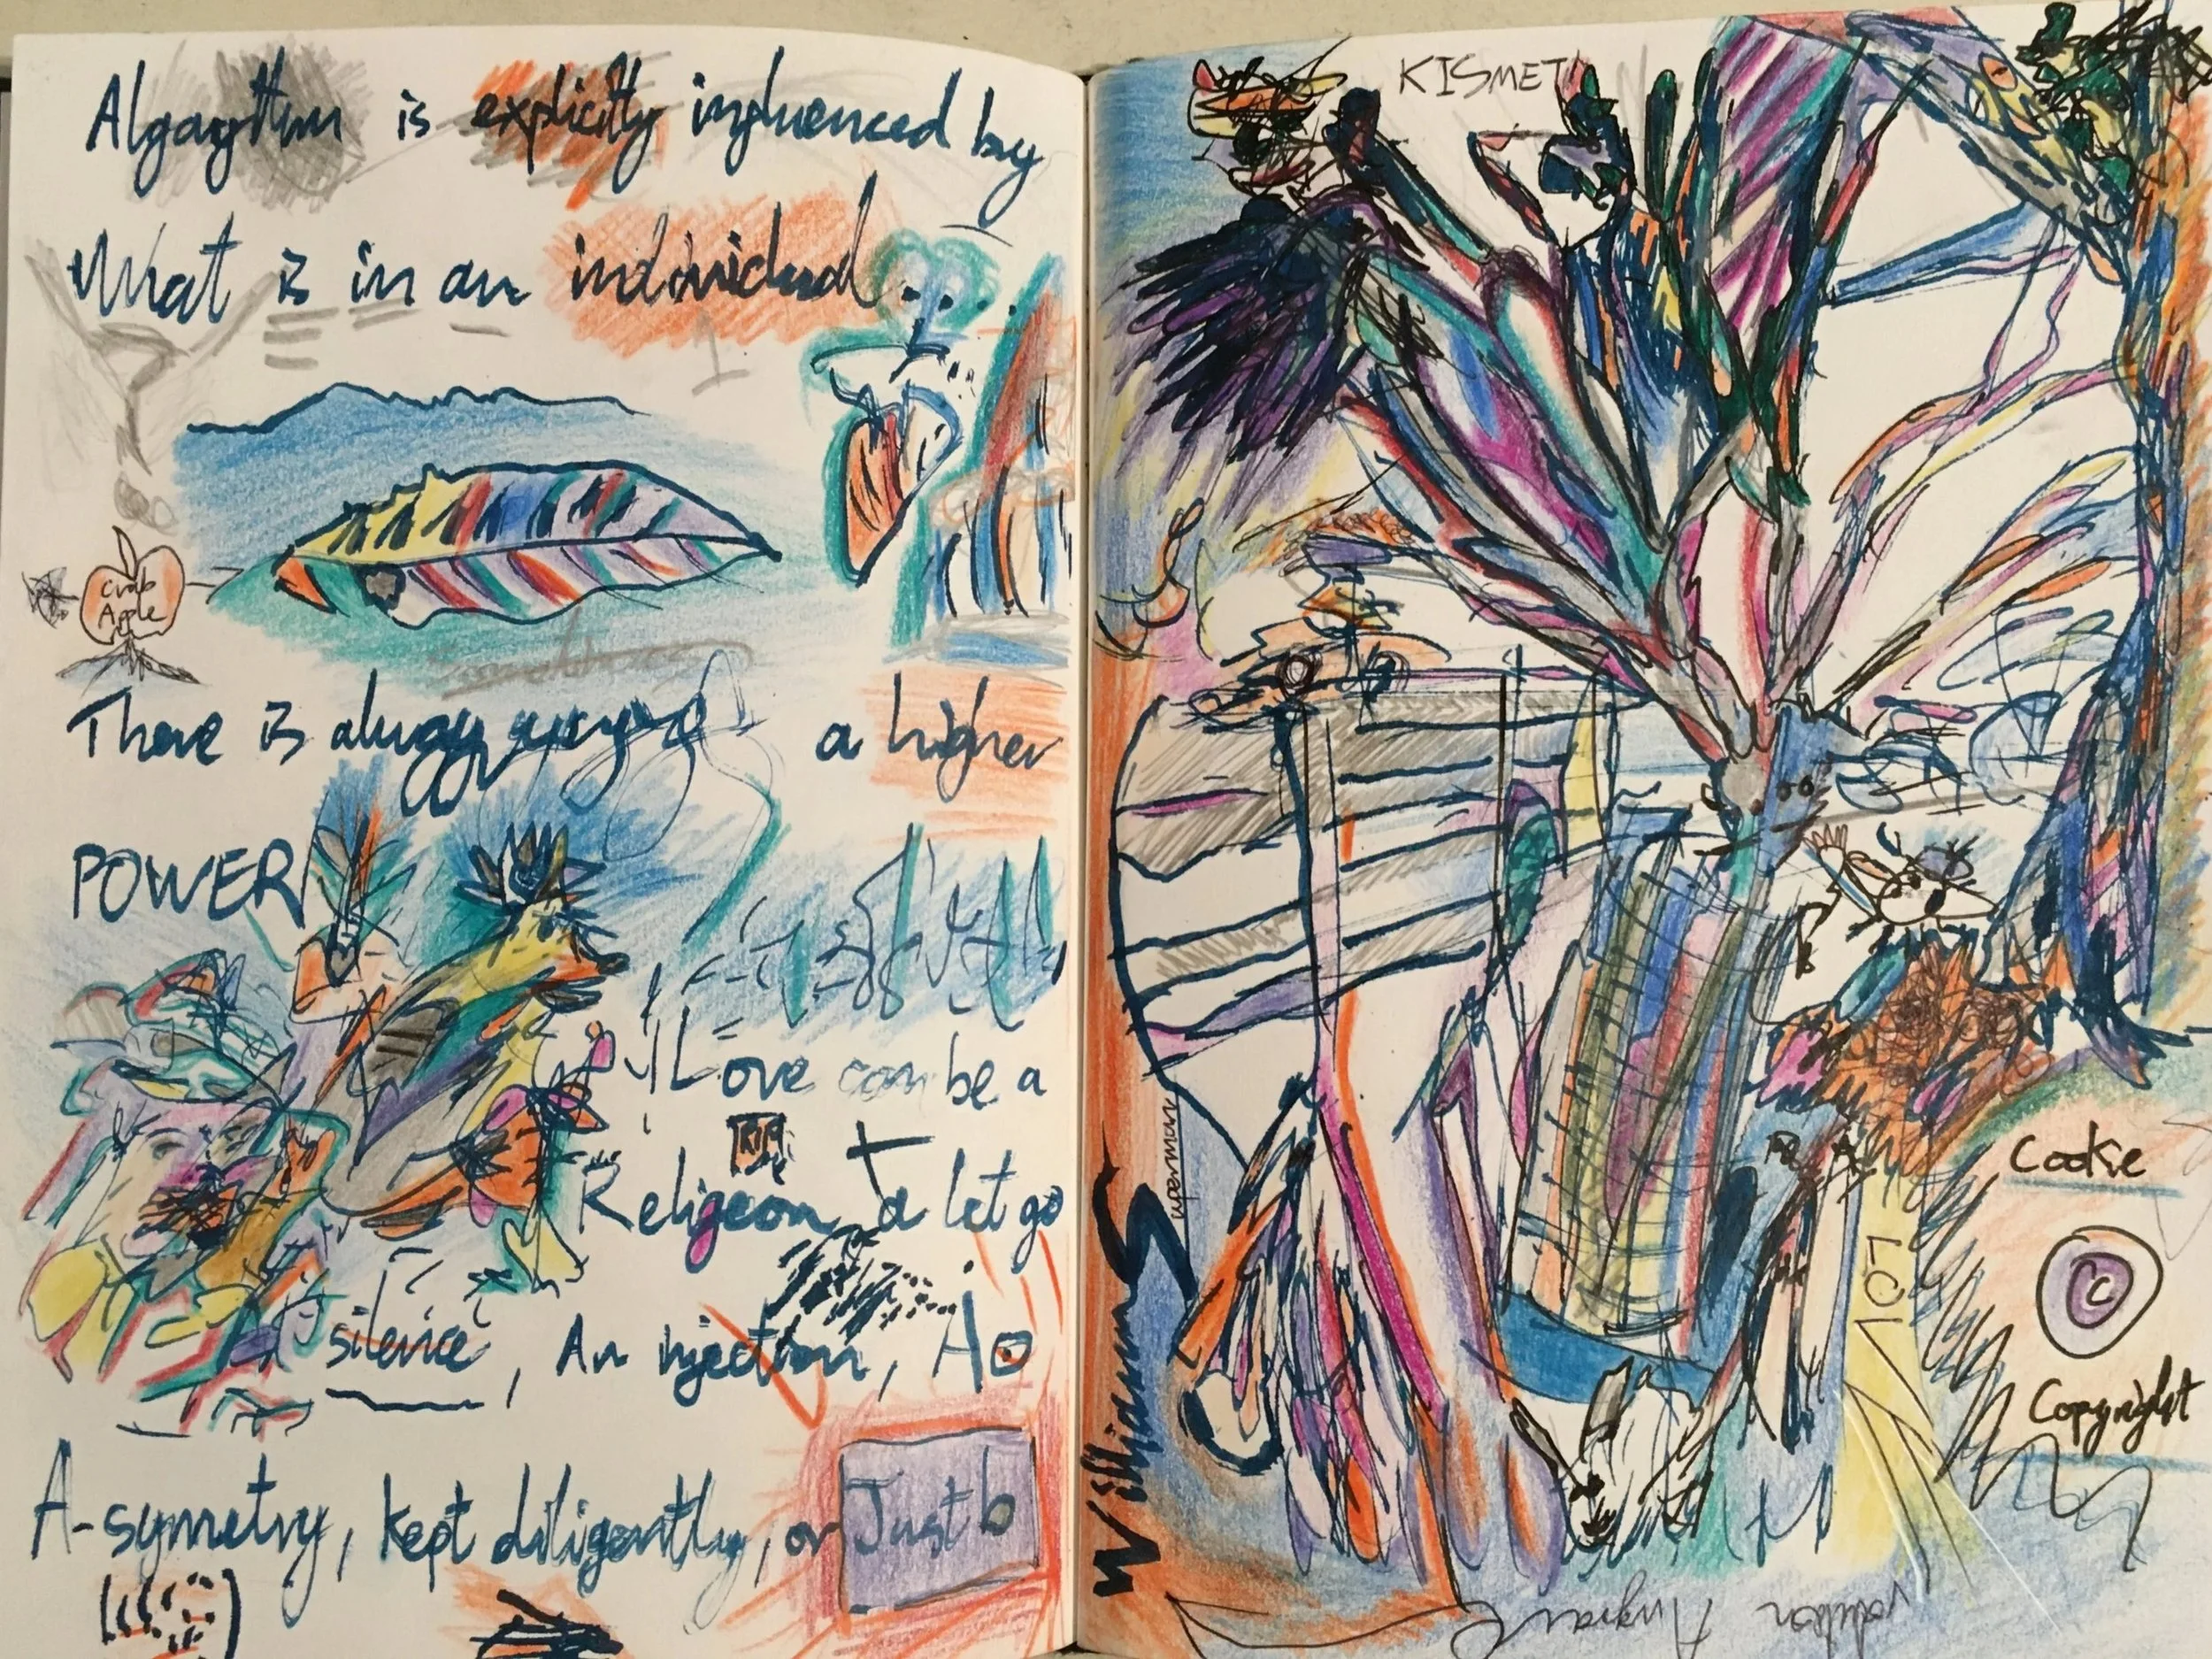 Algorythm is explicitly influenced by
What is in an individual..
Crab
Apple
There is always a higher
POWER
Love can be a
Religeon, a let go
A silence, An injection, A
A-symetry, kept diligently, or Just b
KISMET
Williams
uperman
LOL
Cookie
C
Copyright